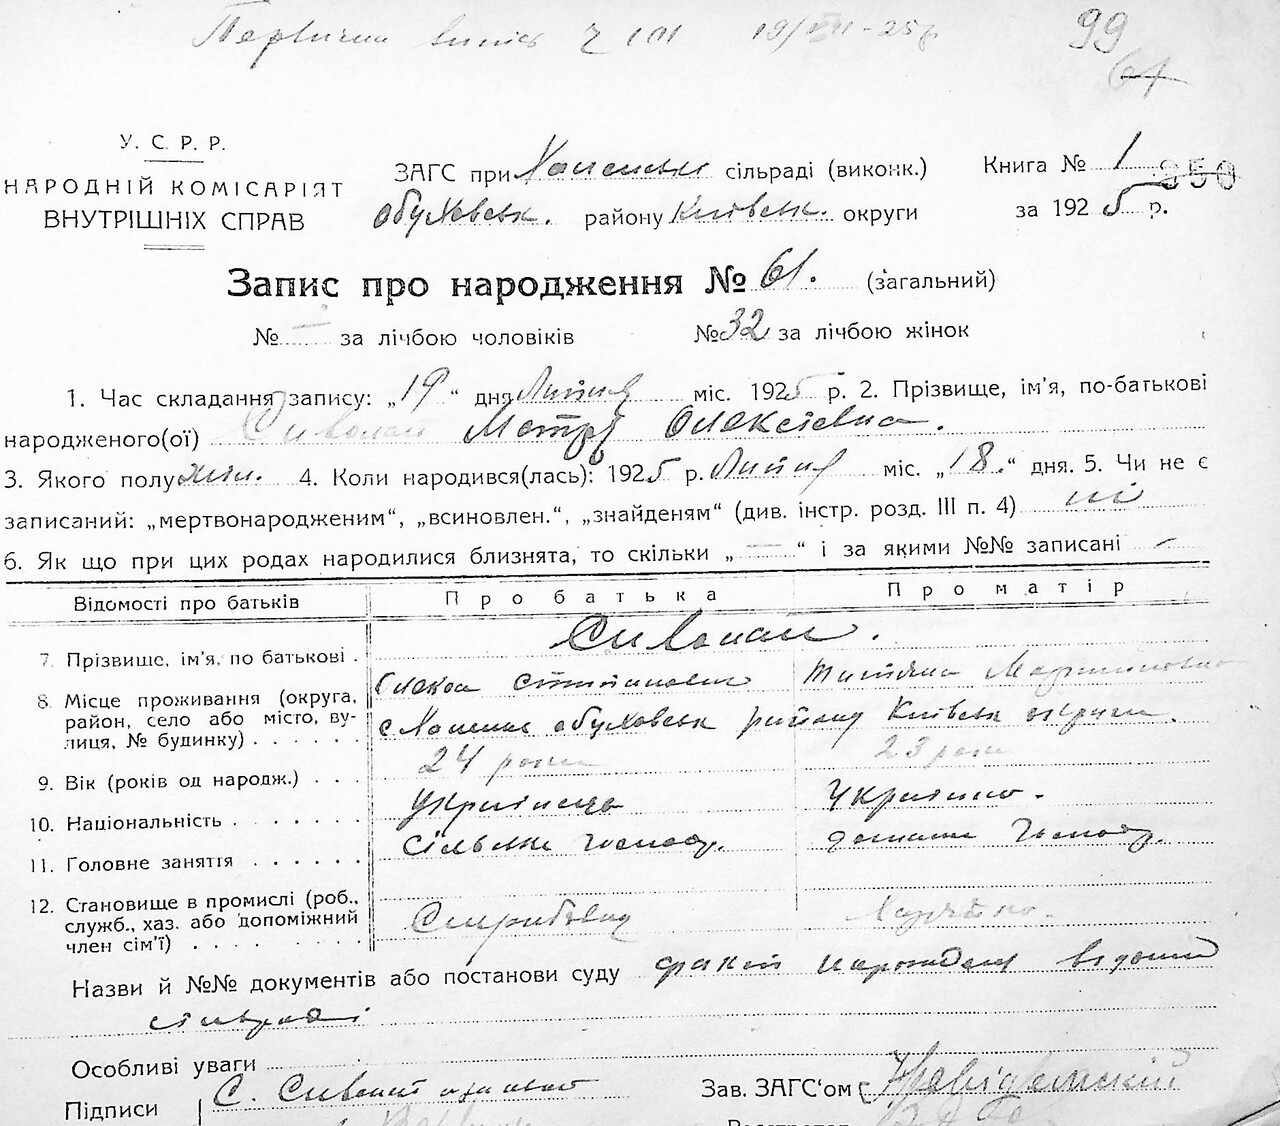 Первичний випис Ч 101 19/VII-25 р 99
61
У. С. Р. Р.
НАРОДНІЙ КОМІСАРІЯТ
ВНУТРІШНІХ СПРАВ
ЗАГС при сільраді (виконк.)
Обуховськ. району Київськ. округи
Книга № 1
350
за 1925 р.
Запис про народження № 61. (загальний)
№ — за лічбою чоловіків №32 за лічбою жінок
1. Час складання запису: „19“ дня Липня міс. 1925 р. 2. Прізвище, ім'я, по-батькові
народженого(ої) Сиволап Мотря Олексієвна.
3. Якого полу жін. 4. Коли народився(лась): 1925 р. Липня міс. „18.“ дня. 5. Чи не є
записаний: „мертвонародженим“, „всиновлен.“, „знайденям“ (див. інстр. розд. III п. 4) ні
6. Як що при цих родах народилися близнята, то скільки „—“ і за якими №№ записані —
Відомості про батьків Про батька Про матір
Сиволап.
7. Прізвише, ім'я, по батькові . Олекса Степанович Тетяна Мартиновна
8. Місце проживання (округа, район, село або місто, вулиця, № будинку) . . . . . . Обуховськ району Київськ округи.
9. Вік (років од народж.) . . . 24 роки 23 роки
10. Національність . . . . . . . Українець Українка.
11. Головне заняття . . . . . . Сільське господ. домашнє господ.
12. Становище в промислі (роб., служб., хаз. або допоміжний член сім'ї) . . . .
Назви й №№ документів або постанови суду факт народження відомий
сільраді
Особливі уваги
Підписи С. Сиволап
Зав. ЗАГС'ом